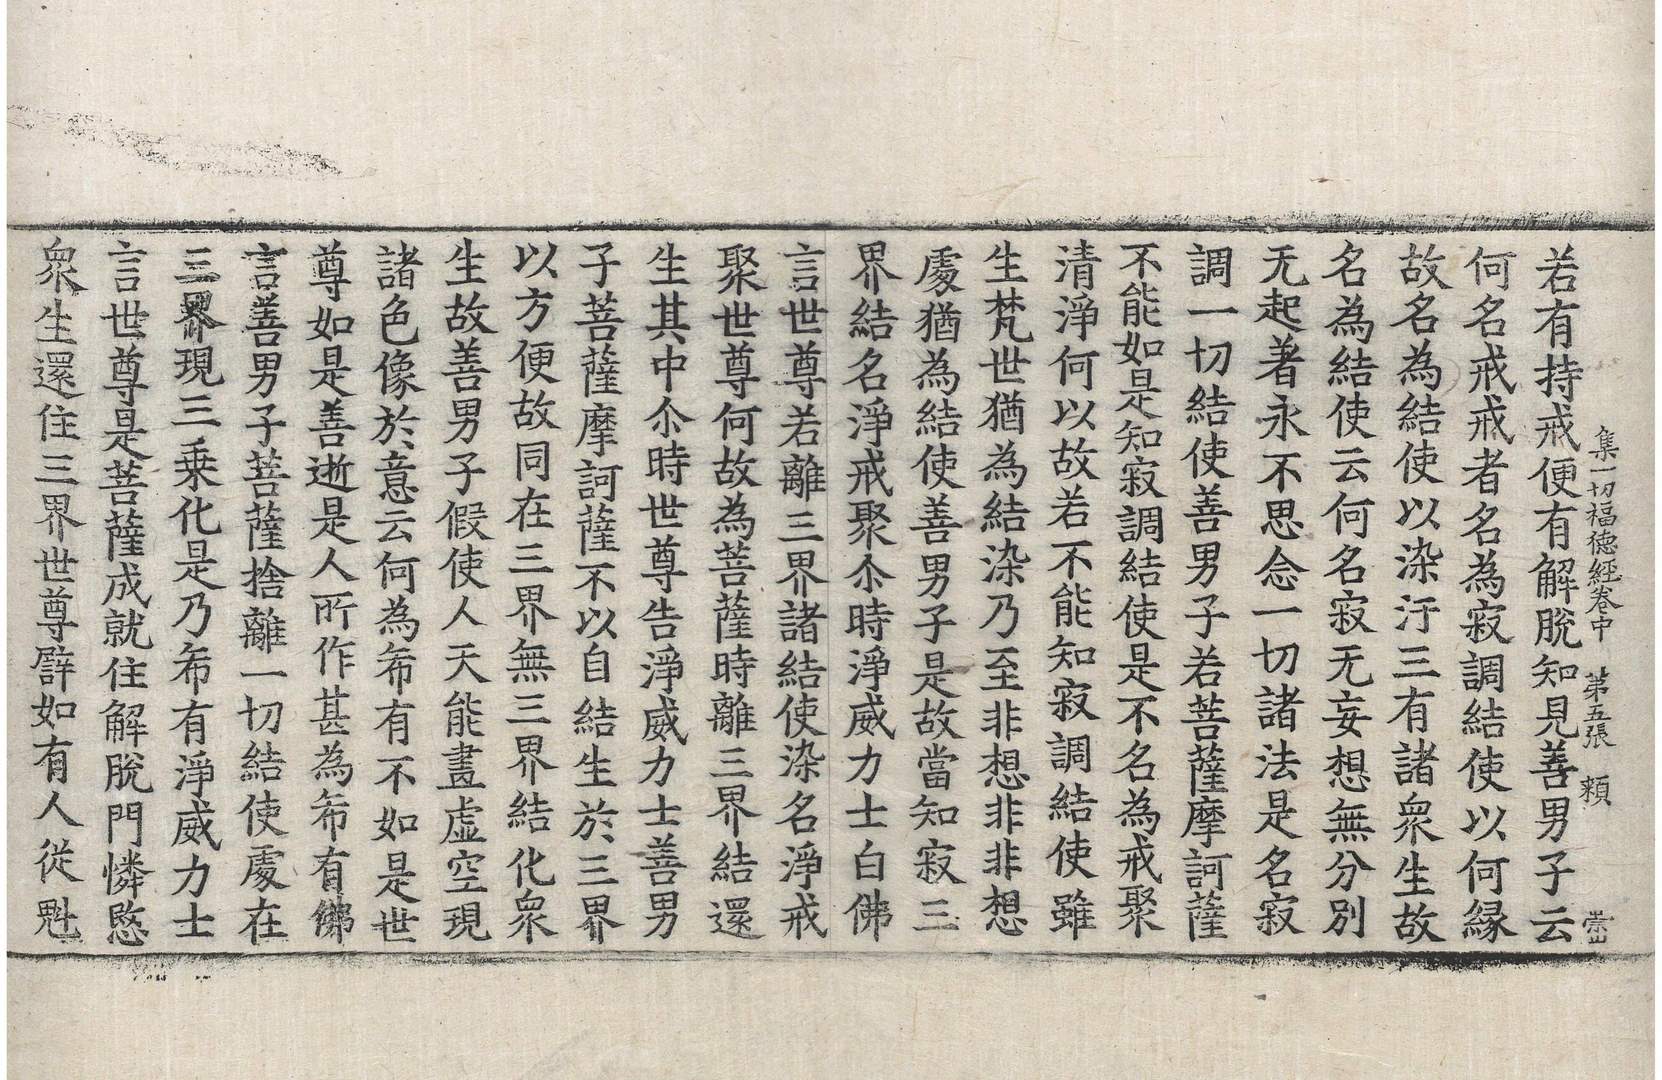 集一切福德經卷中　第五張　賴
若有持戒便有解脫知見善男子云
何名戒戒者名為寂調結使以何縁
故名為結使以染汙三有諸衆生故
名為結使云何名寂无妄想無分別
无起著永不思念一切諸法是名寂
調一切結使善男子若菩薩摩訶薩
不能如是知寂調結使是不名為戒聚
清淨何以故若不能知寂調結使雖
生梵世猶為結染乃至非想非非想
處猶為結使善男子是故當知寂三
界結名淨戒聚尒時淨威力士白佛
言世尊若離三界諸結使染名淨戒
聚世尊何故為菩薩時離三界結還
生其中尒時世尊告淨威力士善男
子菩薩摩訶薩不以自結生於三界
以方便故同在三界無三界結化衆
生故善男子假使人天能畫虛空現
諸色像於意云何為希有不如是世
尊如是善逝是人所作甚為希有佛
言善男子菩薩捨離一切結使處在
三界現三乗化是乃希有淨威力士
言世尊是菩薩成就住解脫門憐愍
衆生還住三界世尊譬如有人從魁